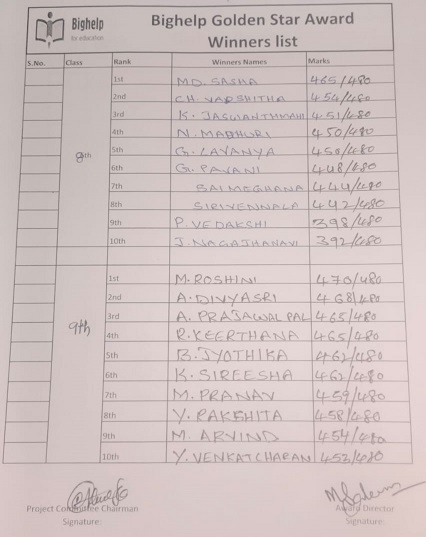 Bighelp
for education
Bighelp Golden Star Award
Winners list
S.No. Class Rank Winners Names Marks
8th
1st MD. SASHA 465/480
2nd CH. VARSHITHA 454/480
3rd K. JASWANTHMAHI 451/480
4th N. MADHURI 450/480
5th G. LAVANYA 450/480
6th G. PAVANI 448/480
7th SAI MEGHANA 444/480
8th SIRIVENNALA 442/480
9th P. VEDAKSHI 398/480
10th J. NAGAJHANAVI 392/480
9th
1st M. ROSHINI 470/480
2nd A. DIVYASRI 468/480
3rd A. PRAJAWAL PAL 465/480
4th R. KEERTHANA 465/480
5th B. JYOTHIKA 462/480
6th K. SIREESHA 462/480
7th M. PRANAV 459/480
8th Y. RAKSHITA 458/480
9th M. ARVIND 454/480
10th Y. VENKATCHARAN 452/480
Project Committee Chairman
Signature:
Award Director
Signature: